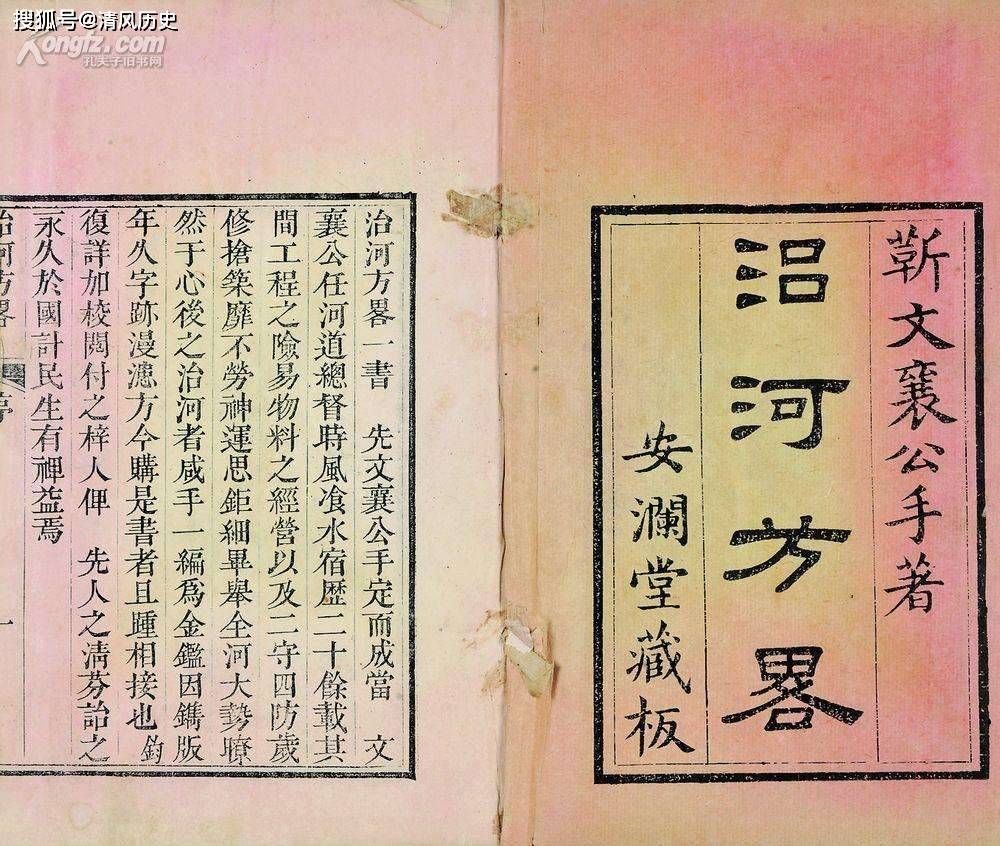 搜狐号@清风历史
Kongfz.com
孔夫子旧书网
靳文襄公手著
治河方畧
安瀾堂藏板
治河方畧一書　先文襄公手定而成當　文
襄公任河道總督時風飡水宿歷二十餘載其
間工程之險易物料之經營以及二守四防歲
修搶築靡不勞神運思鉅細畢舉全河大勢瞭
然于心後之治河者咸手一編為金鑑因鐫版
年久字跡漫漶方今購是書者且踵相接也鈞
復詳加校閱付之梓人俾　先人之淸芬詒之
永久於國計民生有裨益焉
治河方畧
序
一